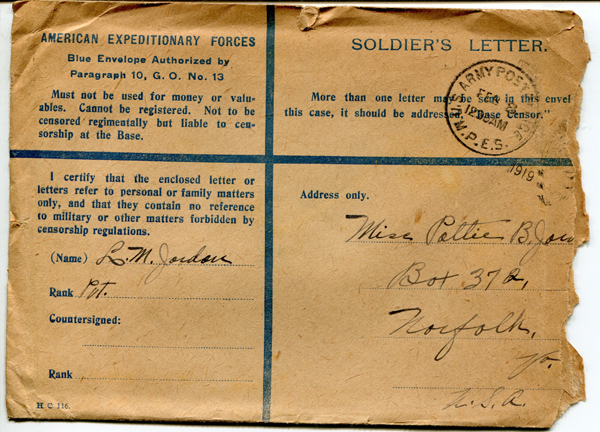 AMERICAN EXPEDITIONARY FORCES
Blue Envelope Authorized by
Paragraph 10, G. O. No. 13
Must not be used for money or valu-
ables. Cannot be registered. Not to be
censored regimentally but liable to cen-
sorship at the Base.
SOLDIER'S LETTER.
U.S. ARMY POST
FEB
12 AM
M.P.E.S.
1919
More than one letter may be sent in this envel
this case, it should be addressed, "Base Censor."
I certify that the enclosed letter or
letters refer to personal or family matters
only, and that they contain no reference
to military or other matters forbidden by
censorship regulations.
(Name) L. M. Jordan
Rank Pvt.
Countersigned:
Rank
H C 116.
Address only.
Miss Pattie B. Jor
Box 372,
Norfolk,
Va.
U.S.A.